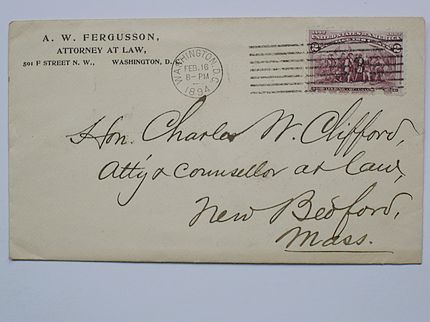 A. W. FERGUSSON,
ATTORNEY AT LAW,
501 F STREET N. W., WASHINGTON, D.
WASHINGTON, D.C.
FEB. 16
8-PM
1894
Hon. Charles W. Clifford,
Att'y & Counsellor at Law,
New Bedford,
Mass.